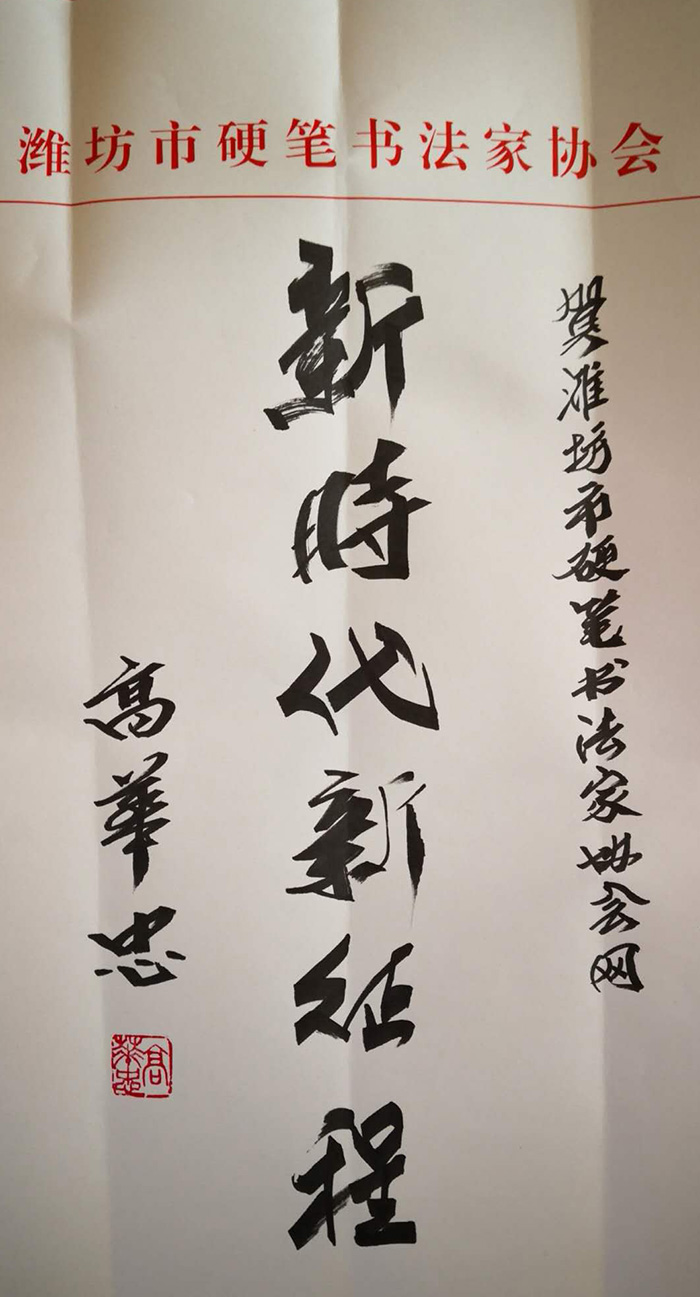 潍坊市硬笔书法家协会
贺潍坊市硬笔书法家协会网
新時代新征程
高華忠
高華忠